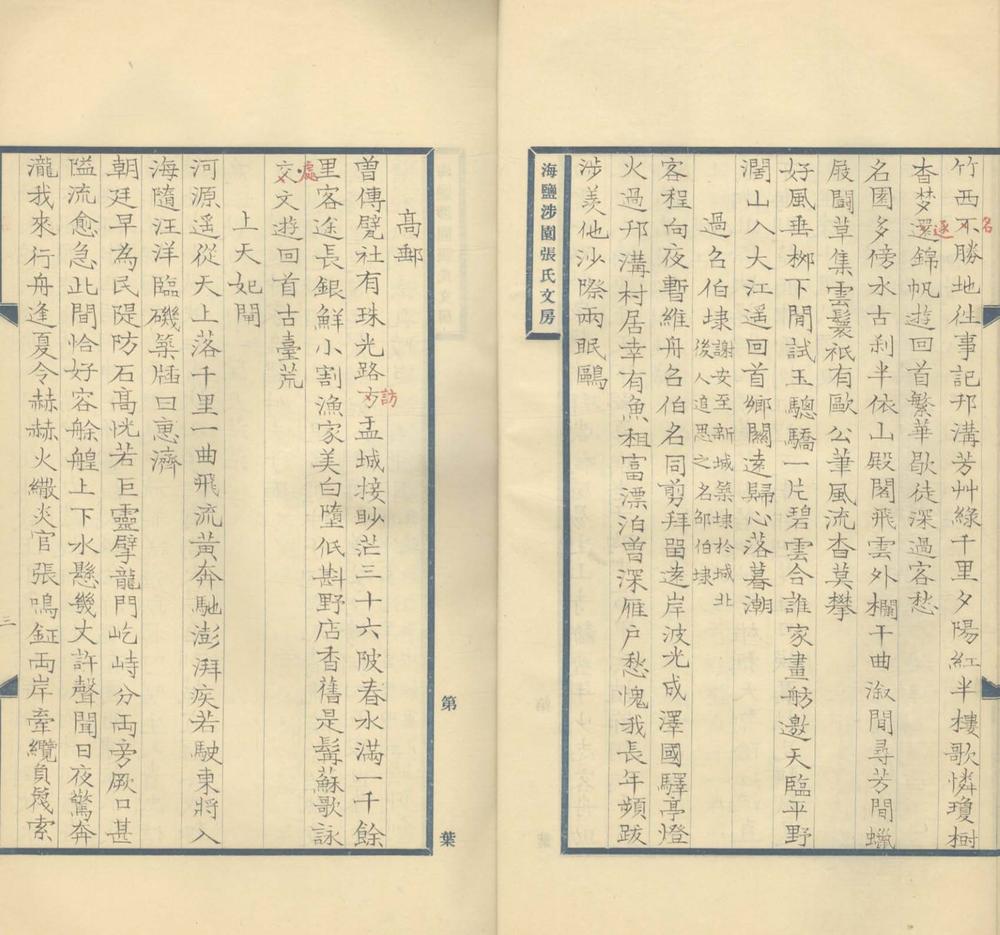 竹西不勝地往事記邗溝芳艸綠千里夕陽紅半樓歌憐瓊樹
名
杳梦還錦帆遊回首繁華歇徒深過客愁
逐
名園多傍水古刹半依山殿閣飛雲外欄干曲淑間尋芳間蠟
屐鬭草集雲鬟祇有歐公筆風流杳莫攀
好風垂栁下閒試玉驄驕一片碧雲合誰家畫舫邀天臨平野
濶山入大江遥回首鄉關遠歸心落暮潮
過召伯埭
謝安至新城築埭扵城北
後人追思之名邵伯埭
客程向夜暫維舟召伯名同剪拜畱遠岸波光成澤國驛亭燈
火過邗溝村居幸有魚租富漂泊曽深雁戸愁愧我長年頻跋
涉羨他沙際兩眠鷗
海鹽涉園張氏文房
第 葉
高郵
曽傳甓社有珠光路方盂城接眇茫三十六陂春水滿一千餘
訪
里客途長銀鮮小割漁家美白墮低斟野店香舊是髯蘇歌詠
處
交文遊回首古臺荒
上天妃閘
河源遥從天上落千里一曲飛流黃奔馳澎湃疾若駛東將入
海隨汪洋臨磯築牐曰惠濟
朝廷早為民隄防石高恍若巨靈擘龍門屹峙分兩旁厥口甚
隘流愈急此間恰好容艅艎上下水懸幾丈許聲聞日夜驚奔
瀧我來行舟逢夏令赫赫火繖炎官張鳴鉦兩岸牽纜負篾索
三